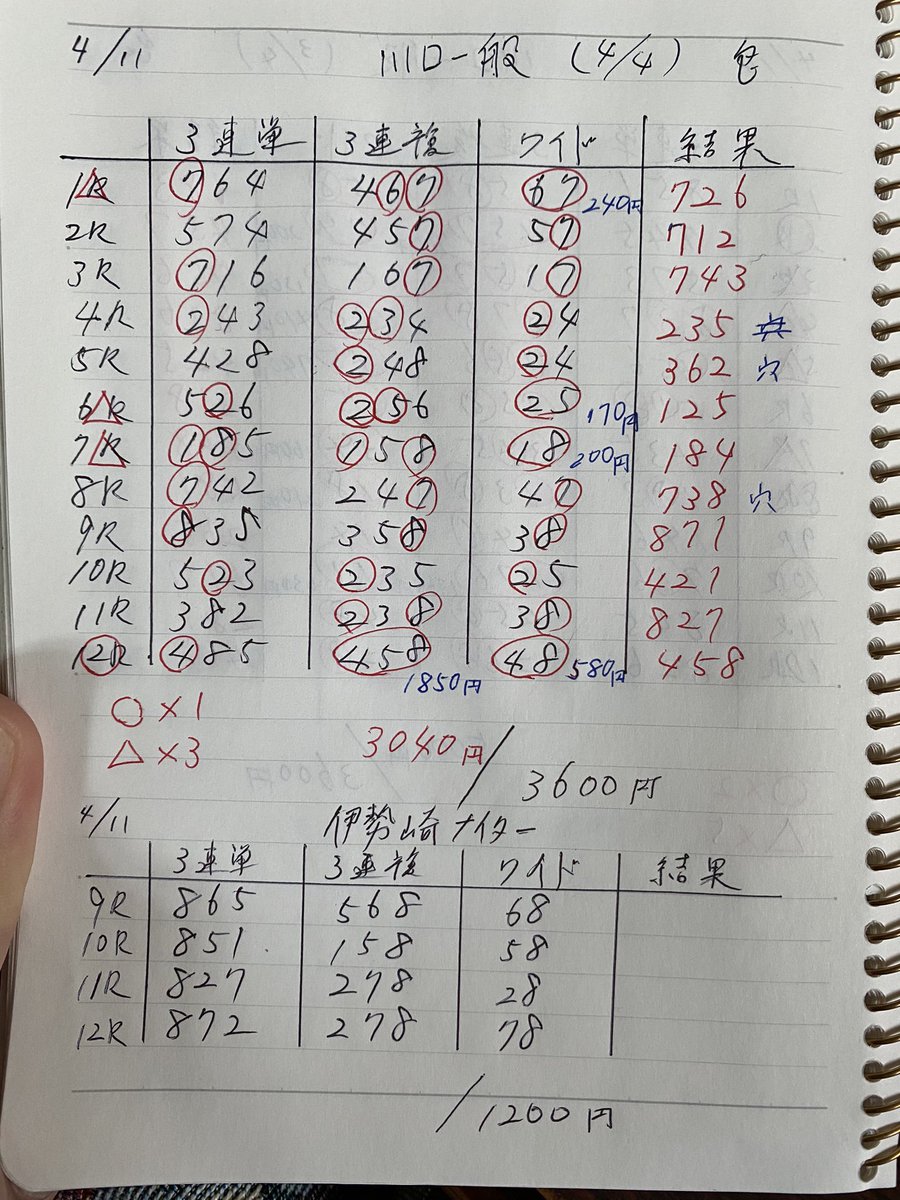 4/11 川口一般 (4/4)
3連単 3連複 ワイド 結果
1R 764 467 67 240円 726
2R 574 457 57 712
3R 716 167 17 743
4R 243 234 24 235
5R 428 248 24 362 穴
6R 526 256 25 170円 125
7R 185 158 18 200円 184
8R 742 247 47 738 穴
9R 835 358 38 871
10R 523 235 25 421
11R 382 238 38 827
12R 485 458 48 580円 458
1850円
○×1
△×3 3040円/3600円
4/11 伊勢崎ナイター
3連単 3連複 ワイド 結果
9R 865 568 68
10R 851 158 58
11R 827 278 28
12R 872 278 78
/1200円